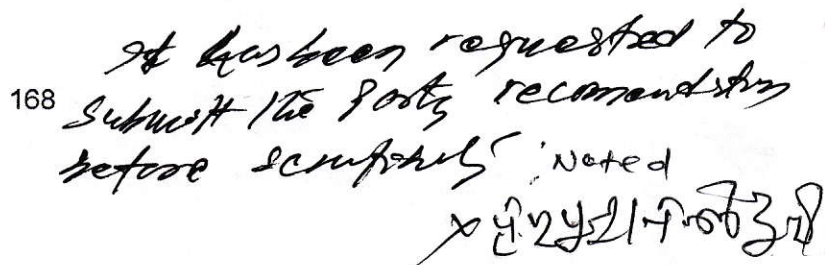 It has been requested to
168 Submitt the Party recomendation
before scrutiny
Noted